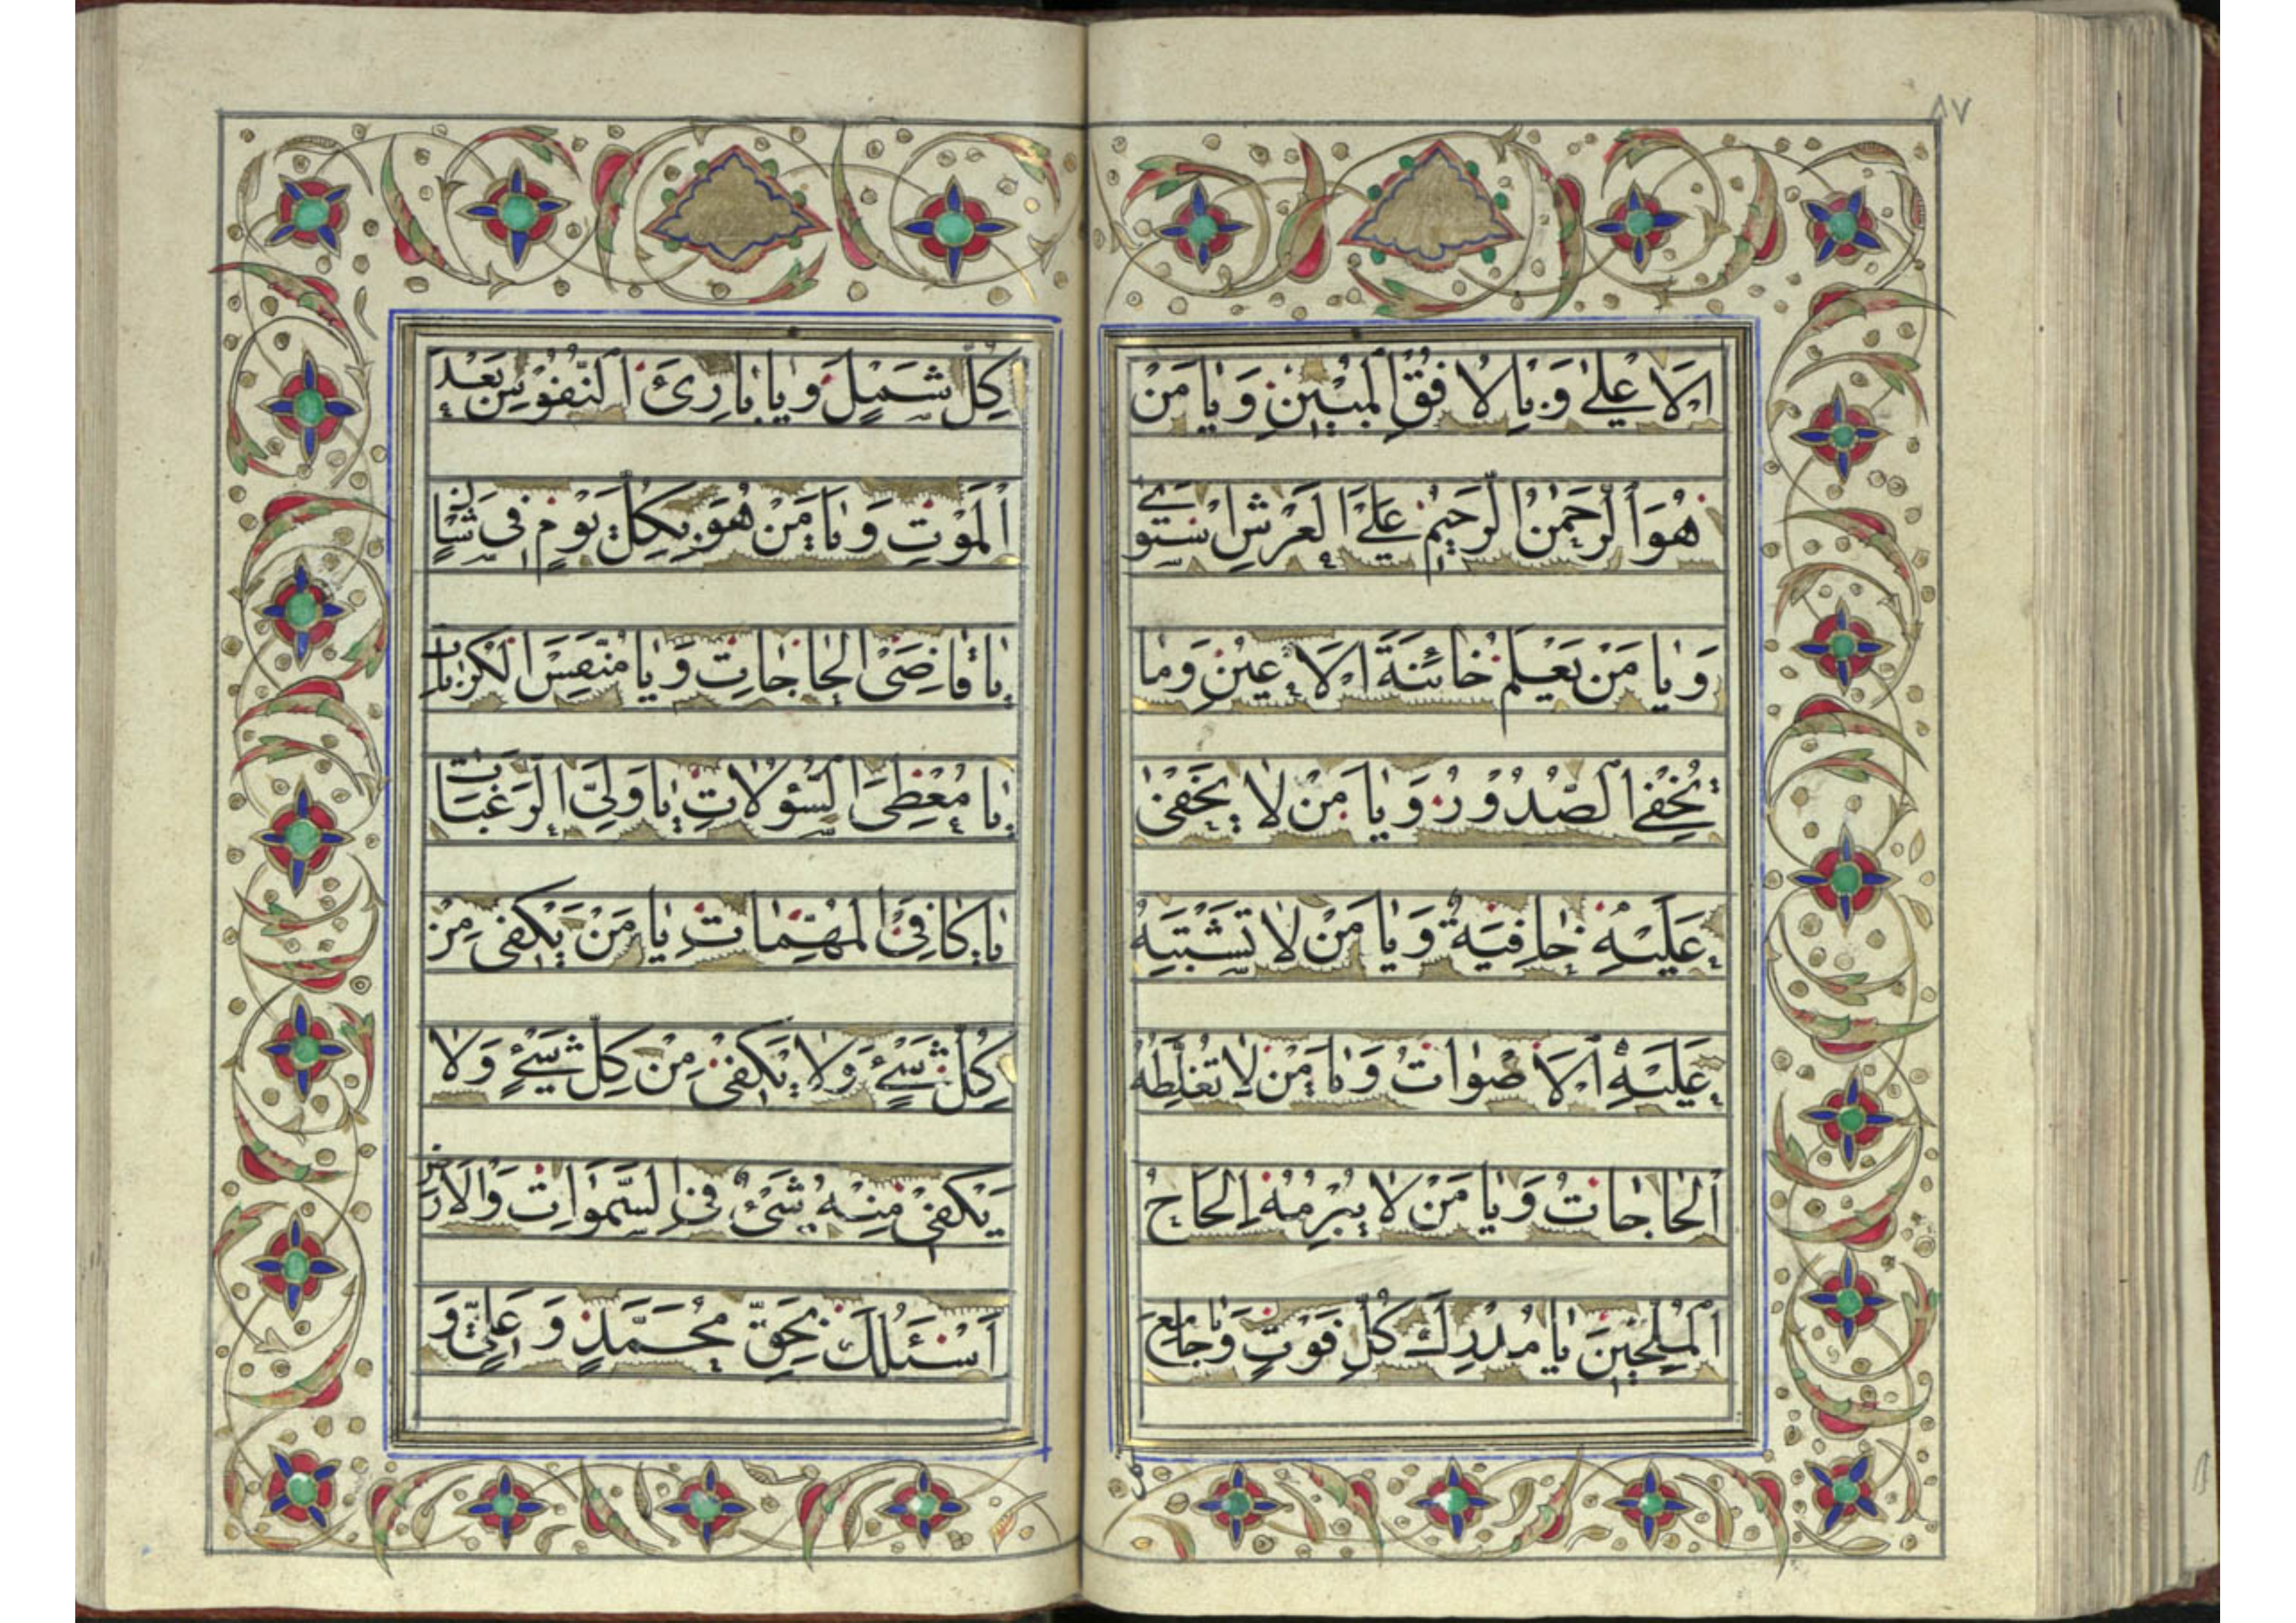 ٨٧
اَلْاَعْلىٰ وَ بِالْاُفُقِ الْمُبْيِنِ وَ يٰا مَنْ
هُوَ الرَّحْمٰنُ الرَّحيٖمُ عَلَى الْعَرْشِ اسْتَوىٰ
وَ يٰا مَنْ يَعْلَمُ خٰائِنَةَ الْاَعْيُنِ وَ مٰا
تُخْفِى الصُّدُوْرُ وَ يٰا مَنْ لٰا يَخْفىٰ
عَلَيْهِ خٰافِيَةٌ وَ يٰا مَنْ لٰا تَشْتَبِهُ
عَلَيْهِ الْاَصْوٰاتُ وَ يٰا مَنْ لٰا تُغَلِّطُهُ
الْحٰاجٰاتُ وَ يٰا مَنْ لٰا يُبْرِمُهُ اِلْحٰاحُ
الْمُلِحّيٖنَ يٰا مُدْرِكَ كُلِّ فَوْتٍ وَ يٰا جٰامِعَ
كُلِّ شَمْلٍ وَ يٰا بٰارِئَ النُّفُوْسِ بَعْدَ
الْمَوْتِ وَ يٰا مَنْ هُوَ بِكُلِّ يَوْمٍ فى شَاْنٍ
يٰا قٰاضِىَ الْحٰاجٰاتِ وَ يٰا مُنَفِّسَ الْكُرُبٰاتِ
يٰا مُعْطِىَ السُّؤُلٰاتِ يٰا وَلِىَّ الرَّغَبٰاتِ
يٰا كٰافِىَ الْمُهِمّٰاتِ يٰا مَنْ يَكْفى مِنْ
كُلِّ شَىْءٍ وَ لٰا يَكْفىٖ مِنْ كُلِّ شَىْءٍ وَ لٰا
يَكْفىٖ مِنْهُ شَىْءٌ فِى السَّمٰوٰاتِ وَ الْاَرْضِ
اَسْئَلُكَ بِحَقِّ مُحَمَّدٍ وَ عَلِىٍّ وَ